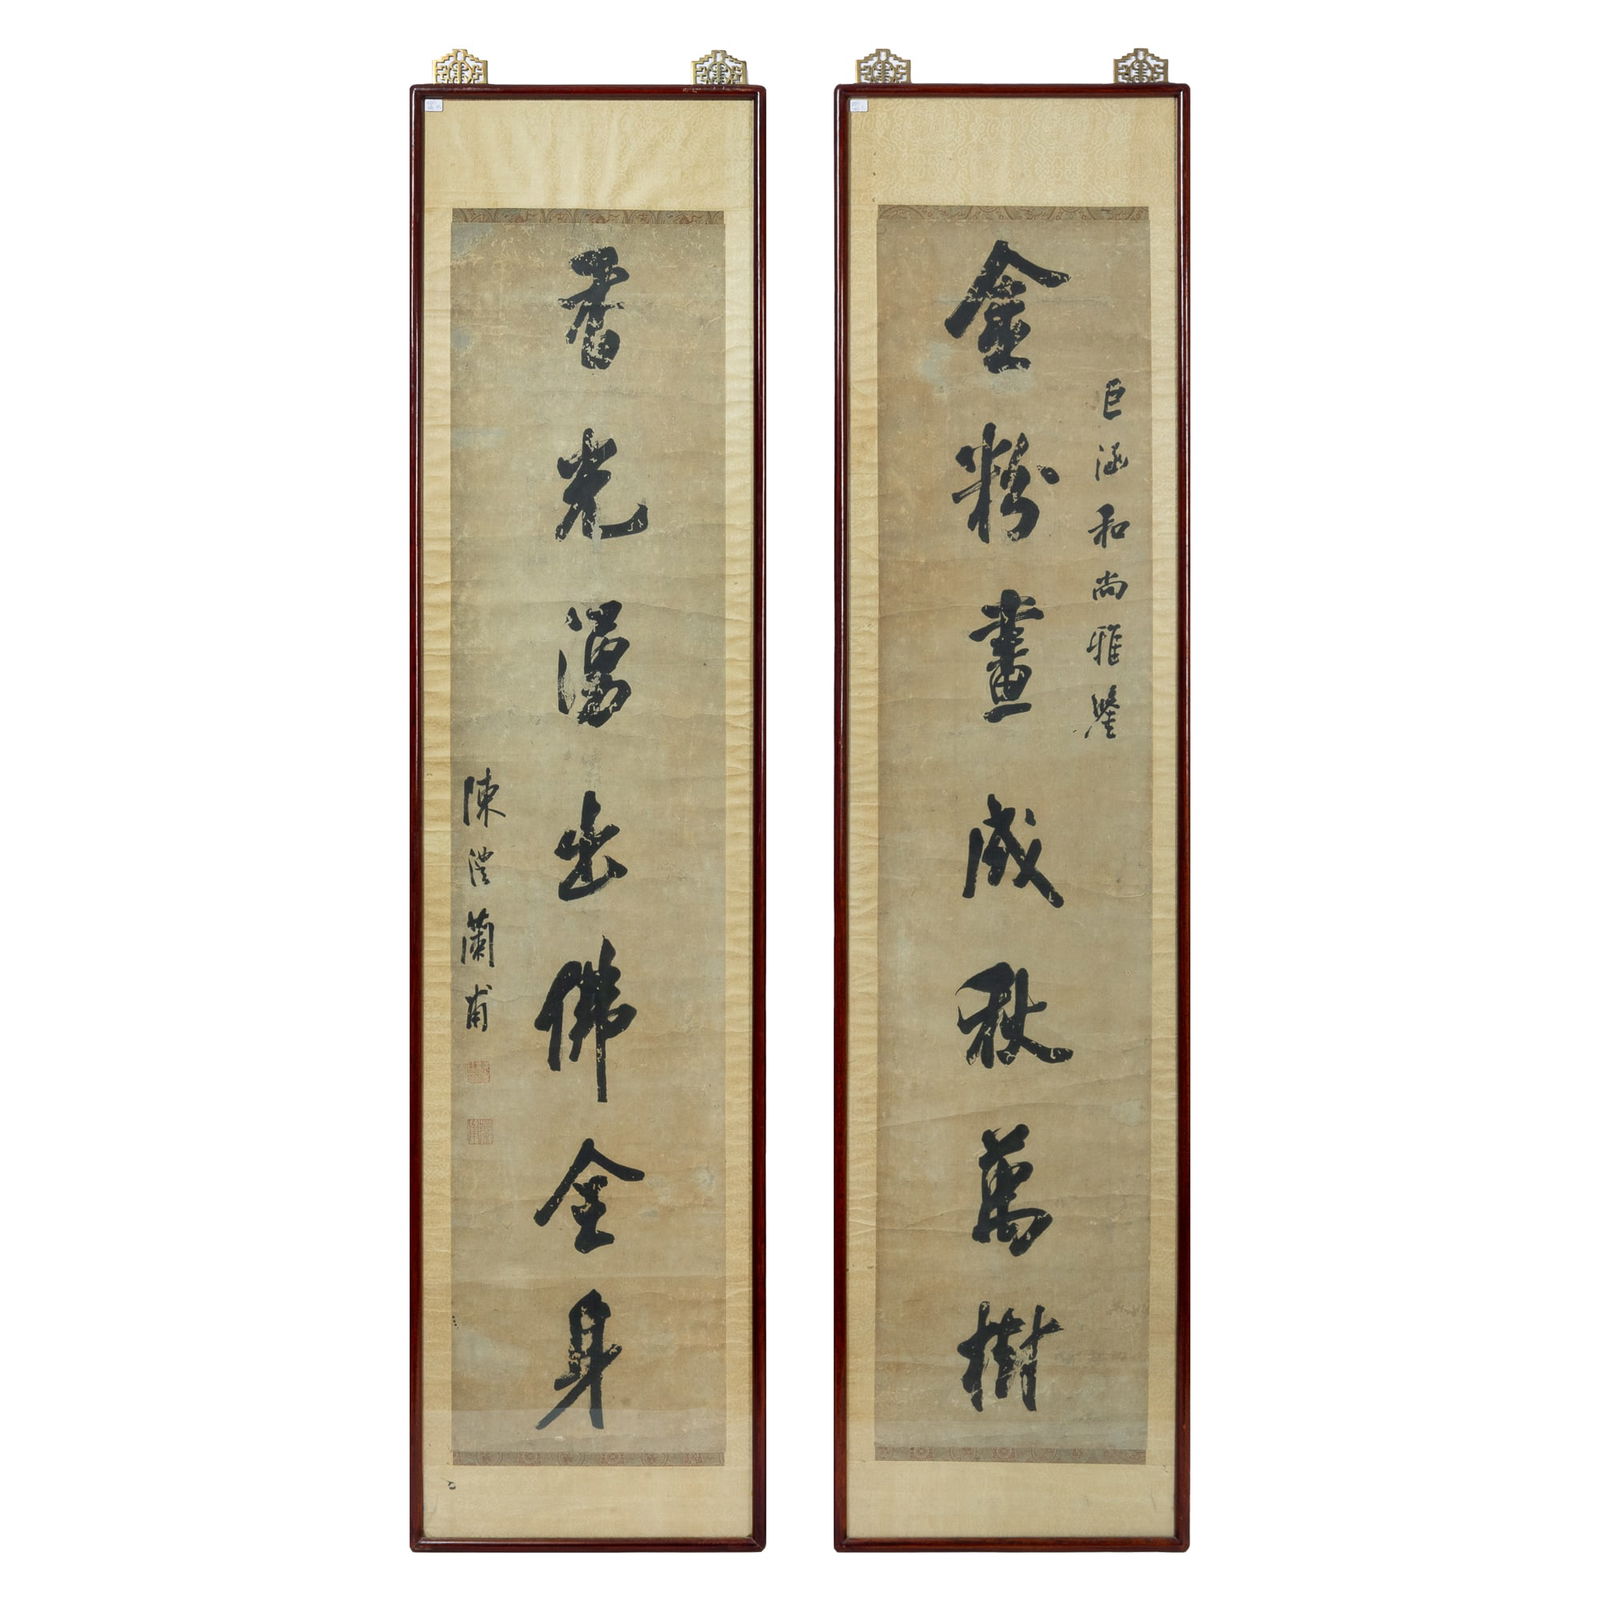 巨涵和尚雅鑒
金粉畫成秋萬樹
香光湧出佛全身
陳澧蘭甫